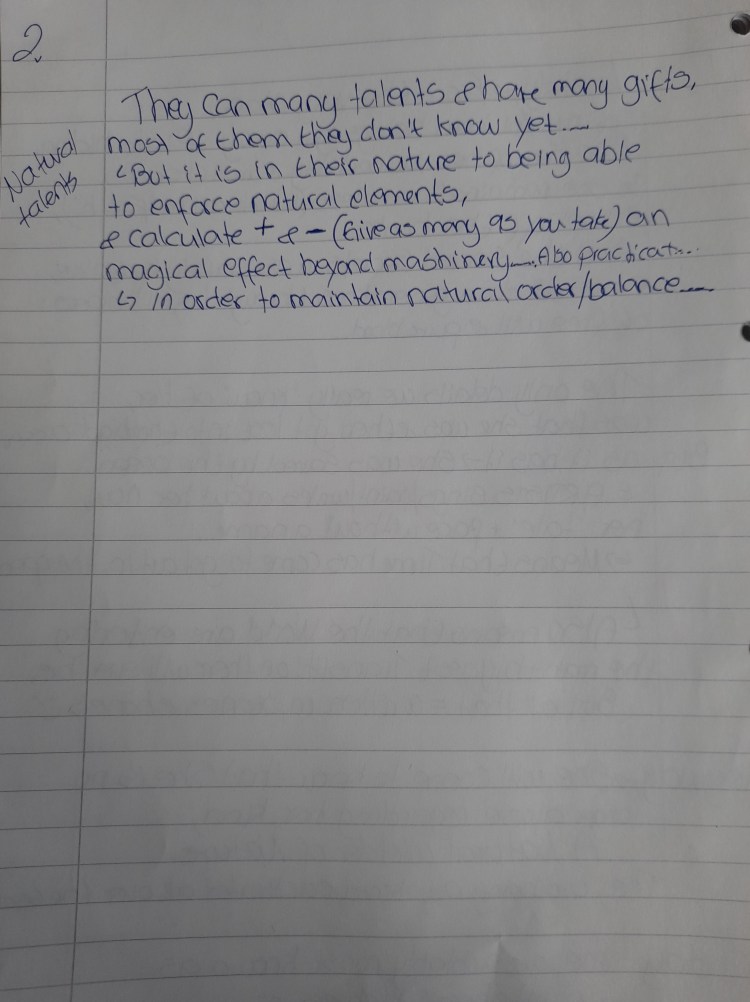 2.
Natural
talents
They can many talents & have many gifts,
most of them they don't know yet...
But it is in their nature to being able
to enforce natural elements,
& calculate + & - (Give as many as you take) an
magical effect beyond mashinery.... Also practicat...
↳ in order to maintain natural order/balance...